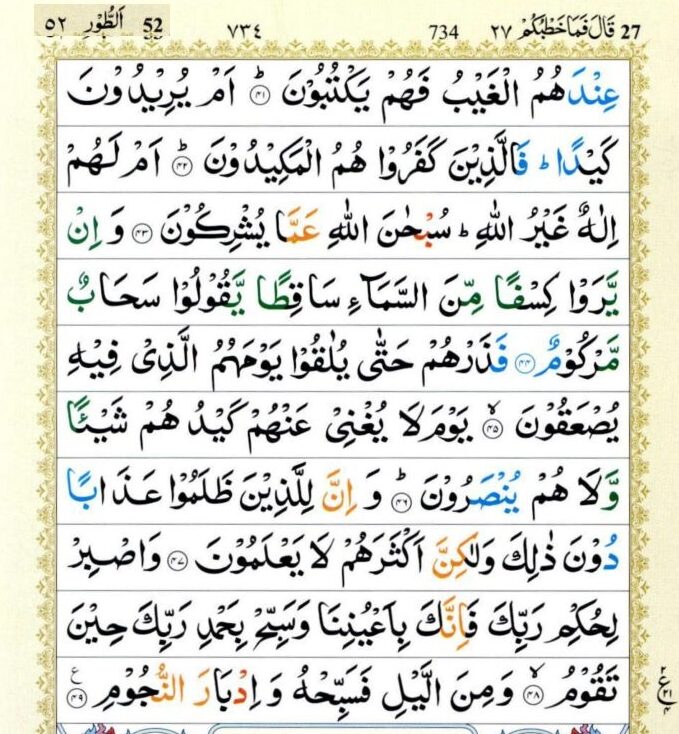 27 قَالَ فَمَا خَطْبُكُمْ ٢٧ 734 ٧٣٤ 52 اَلطُّوْر ٥٢
عِنْدَهُمُ الْغَيْبُ فَهُمْ يَكْتُبُوْنَ ؕ ﴿۴۱﴾ اَمْ يُرِيْدُوْنَ
كَيْدًا ؕ فَالَّذِيْنَ كَفَرُوْا هُمُ الْمَكِيْدُوْنَ ؕ ﴿۴۲﴾ اَمْ لَهُمْ
اِلٰهٌ غَيْرُ اللّٰهِ ؕ سُبْحٰنَ اللّٰهِ عَمَّا يُشْرِكُوْنَ ﴿۴۳﴾ وَ اِنْ
يَّرَوْا كِسْفًا مِّنَ السَّمَآءِ سَاقِطًا يَّقُوْلُوْا سَحَابٌ
مَّرْكُوْمٌ ﴿۴۴﴾ فَذَرْهُمْ حَتّٰى يُلٰقُوْا يَوْمَهُمُ الَّذِىْ فِيْهِ
يُصْعَقُوْنَ ۙ ﴿۴۵﴾ يَوْمَ لَا يُغْنِىْ عَنْهُمْ كَيْدُهُمْ شَيْئًا
وَّلَا هُمْ يُنْصَرُوْنَ ؕ ﴿۴۶﴾ وَ اِنَّ لِلَّذِيْنَ ظَلَمُوْا عَذَابًا
دُوْنَ ذٰلِكَ وَلٰكِنَّ اَكْثَرَهُمْ لَا يَعْلَمُوْنَ ﴿۴۷﴾ وَاصْبِرْ
لِحُكْمِ رَبِّكَ فَاِنَّكَ بِاَعْيُنِنَا وَسَبِّحْ بِحَمْدِ رَبِّكَ حِيْنَ
تَقُوْمُ ۙ ﴿۴۸﴾ وَمِنَ الَّيْلِ فَسَبِّحْهُ وَ اِدْبَارَ النُّجُوْمِ ﴿۴۹﴾ ع
٢ ع ٢١ ٤